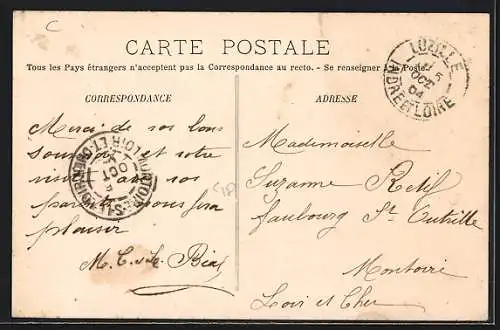 C
CARTE POSTALE
Tous les Pays étrangers n'acceptent pas la Correspondance au recto. - Se renseigner à la Poste.
CORRESPONDANCE
ADRESSE
LUZILLE
5
OCT
04
INDRE ET LOIRE
Merci de vos bons
souvenirs et votre
visite avec vos
parents nous fera
plaisir
M. C.
MONTOIRE-S-LE-LOIR
LOIR-ET-CHER
OCT
Mademoiselle
Suzanne Retif
faubourg St Outrille
Montoire
Loir et Cher